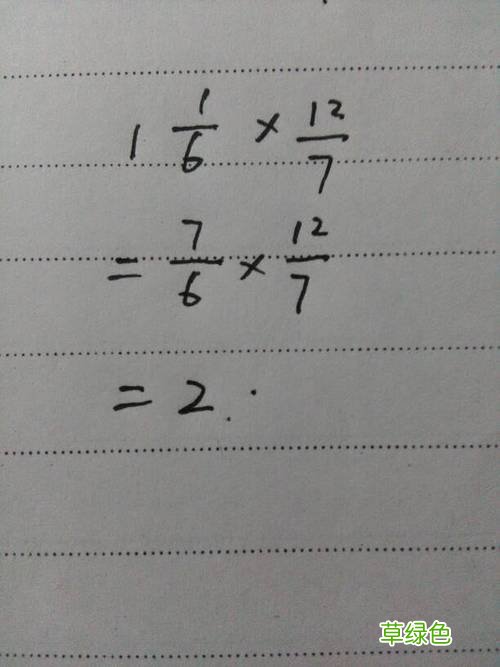 1 1/6 × 12/7
= 7/6 × 12/7
= 2.
草绿色